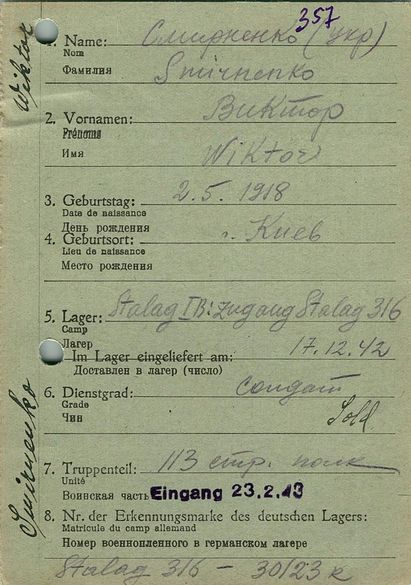 357
Wiktor
1. Name: Смирненко (укр)
Nom
Фамилия Smirnenko
2. Vornamen: Виктор
Prénoms
Имя Wiktor
3. Geburtstag: 2.5.1918
Date de naissance
День рождения
4. Geburtsort: г. Киев
Lieu de naissance
Место рождения
5. Lager: Stalag IB: Zugang Stalag 316
Camp
Лагерь
Im Lager eingeliefert am: 17.12.42
Доставлен в лагерь (число)
6. Dienstgrad: солдат
Grade
Чин Sold.
Smirnenko
7. Truppenteil: 113 стр. полк
Unité
Воинская часть Eingang 23.2.43
8. Nr. der Erkennungsmarke des deutschen Lagers:
Matricule du camp allemand
Номер военнопленного в германском лагере
Stalag 316 - 30123 K